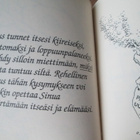 us tunnet itsesi kiireiseksi,
tomaksi ja loppuunpalaneeksi,
hdy silloin miettimään, miltä
ta tuntuu sillä. Rehellinen
us tähän kysymykseen voi
kin opettaa Sinua
rtämään itseäsi ja elämääsi.